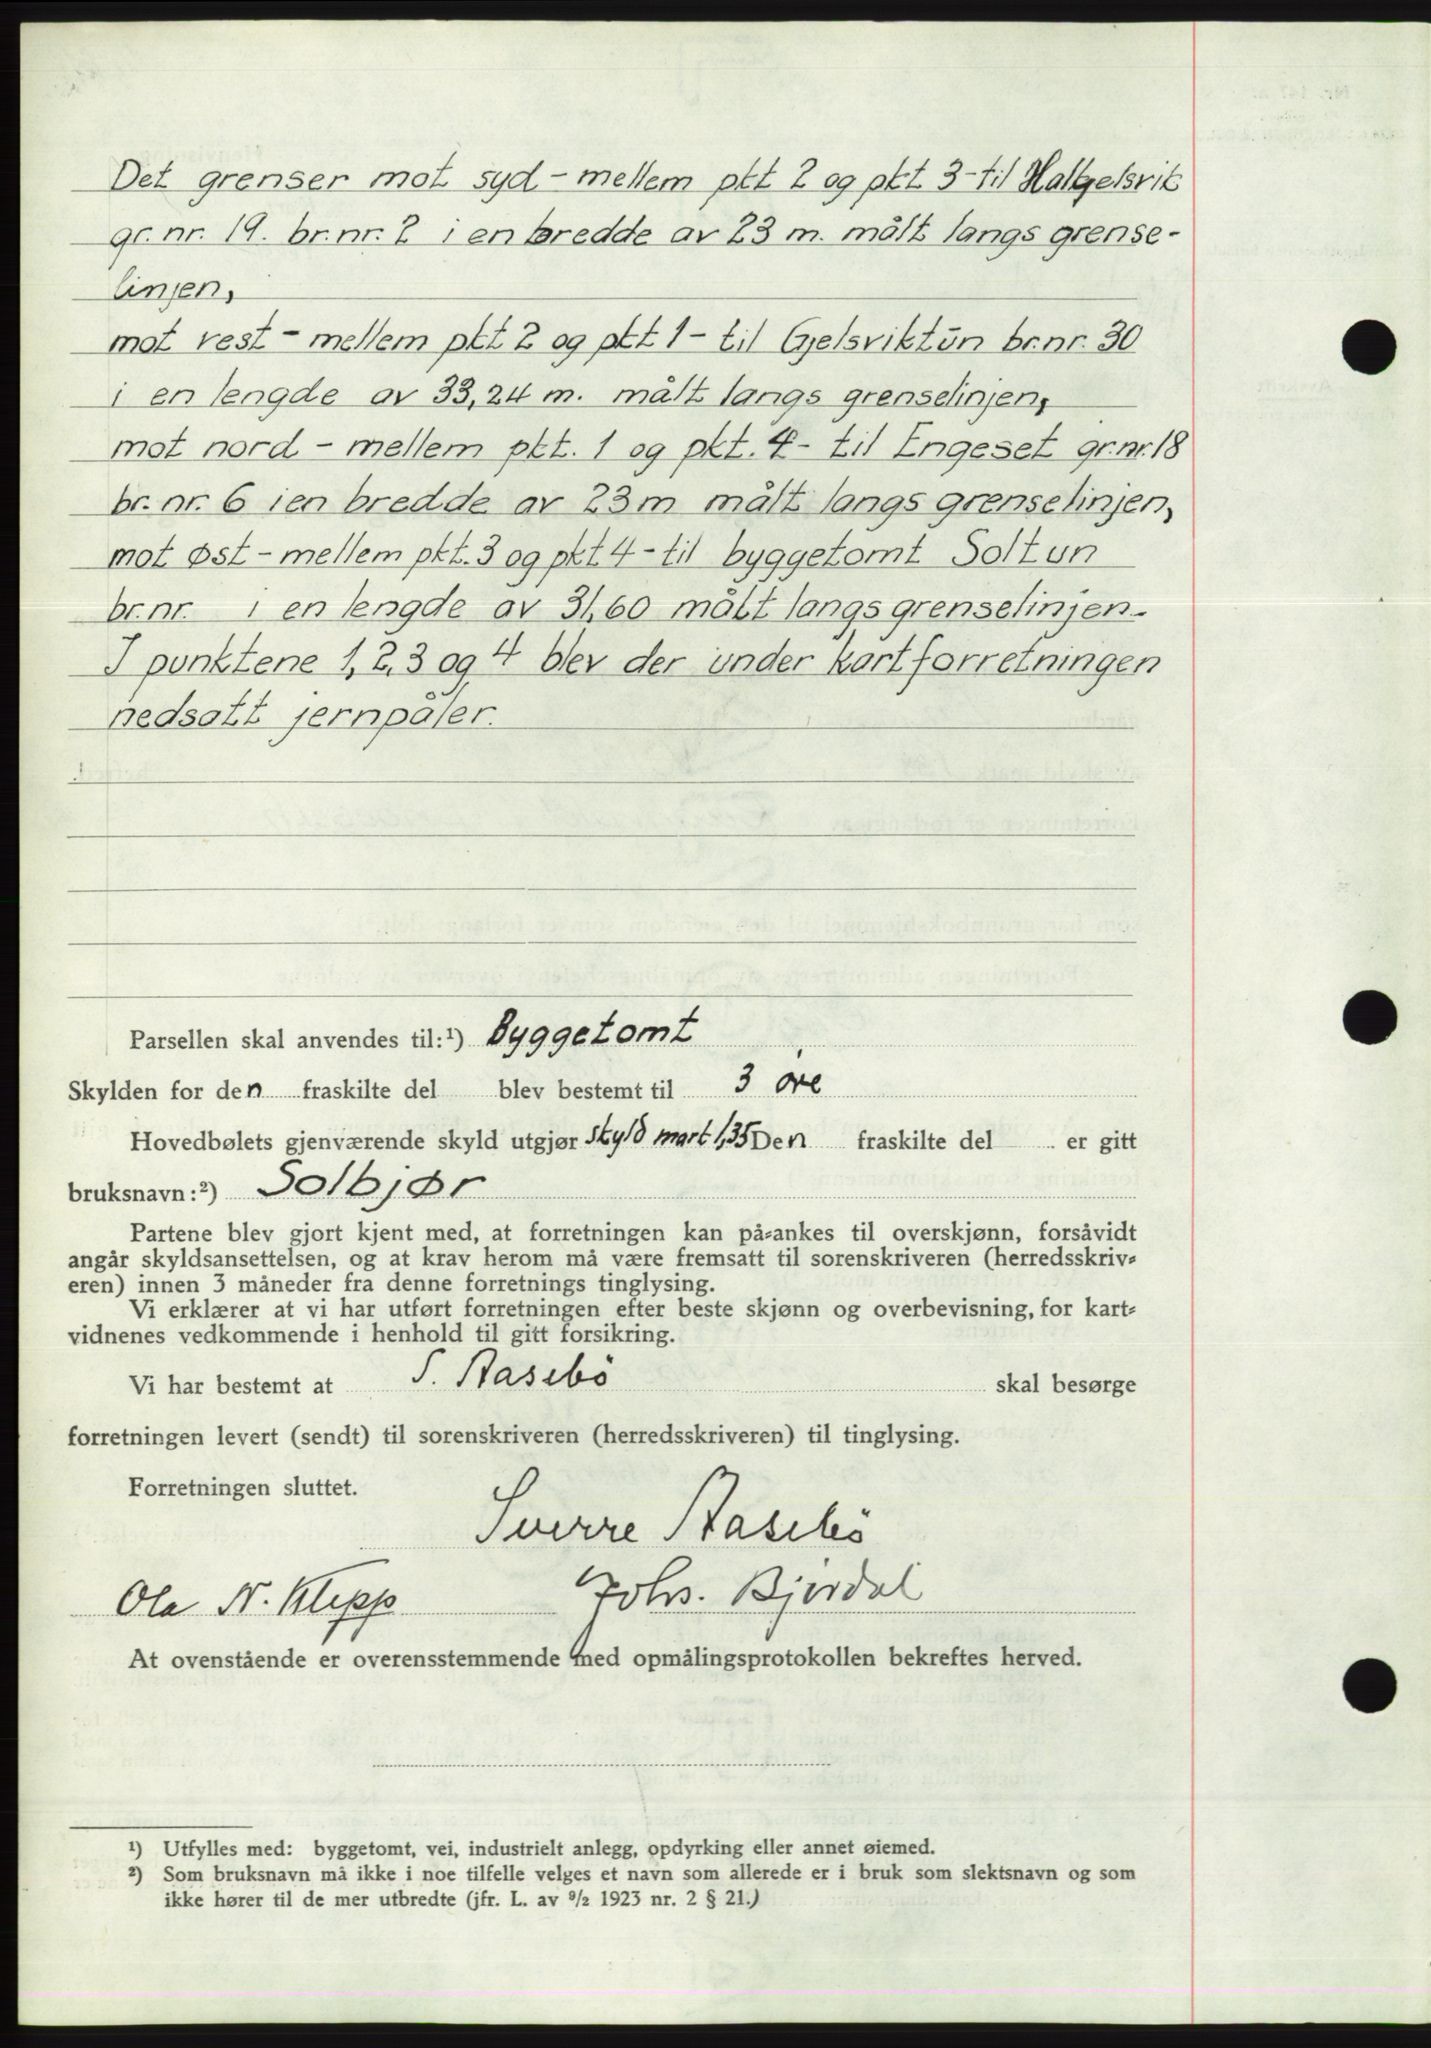 Det grenser mot syd - mellem pkt 2 og pkt 3 - til Halkjelsvik
gr. nr. 19. br. nr. 2 i en bredde av 23 m. målt langs grense-
linjen,
mot vest - mellem pkt 2 og pkt 1 - til Gjelsviktūn br.nr. 30
i en lengde av 33,24 m. målt langs grenselinjen,
mot nord - mellem pkt. 1 og pkt. 4 - til Engeset gr.nr.18
br. nr. 6 i en bredde av 23 m målt langs grenselinjen,
mot øst - mellem pkt. 3 og pkt 4 - til byggetomt Soltun
br.nr. i en lengde av 31,60 målt langs grenselinjen.
I punktene 1, 2, 3 og 4 blev der under kartforretningen
nedsatt jernpåler.
Parsellen skal anvendes til:¹) Byggetomt
Skylden for den fraskilte del blev bestemt til 3 øre
Hovedbølets gjenværende skyld utgjør skyld mark 1,35 Den fraskilte del er gitt
bruksnavn:²) Solbjør
Partene blev gjort kjent med, at forretningen kan på-ankes til overskjønn, forsåvidt
angår skyldsansettelsen, og at krav herom må være fremsatt til sorenskriveren (herredsskriv-
eren) innen 3 måneder fra denne forretnings tinglysing.
Vi erklærer at vi har utført forretningen efter beste skjønn og overbevisning, for kart-
vidnenes vedkommende i henhold til gitt forsikring.
Vi har bestemt at S. Aasebö skal besørge
forretningen levert (sendt) til sorenskriveren (herredsskriveren) til tinglysing.
Forretningen sluttet.
Sverre Aasebö
Ola N. Klepp Johs. Bjørdal
At ovenstående er overensstemmende med opmålingsprotokollen bekreftes herved.
¹) Utfylles med: byggetomt, vei, industrielt anlegg, opdyrking eller annet øiemed.
²) Som bruksnavn må ikke i noe tilfelle velges et navn som allerede er i bruk som slektsnavn og som
ikke hører til de mer utbredte (jfr. L. av 9/2 1923 nr. 2 § 21.)